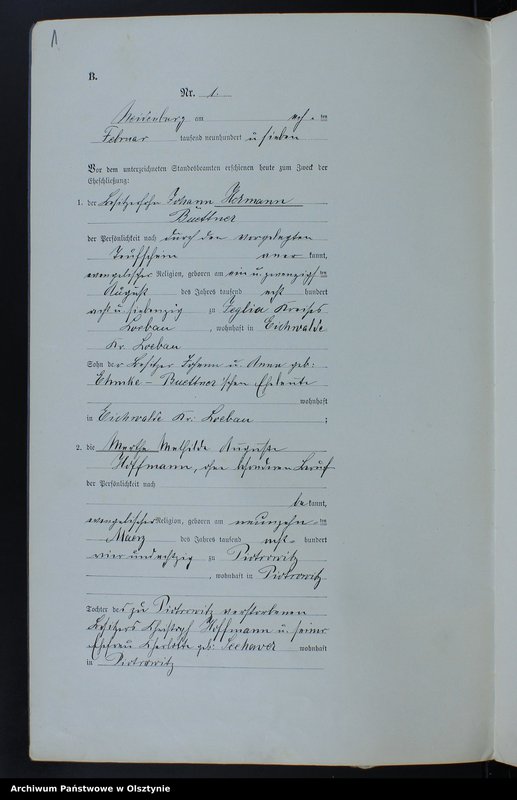 1
B.
Nr. 1.
am ten
Februar tausend neunhundert u sieben
Vor dem unterzeichneten Standesbeamten erschienen heute zum Zweck der
Eheschließung:
1. der Besitzersohn Johann Hermann
Buettner
der Persönlichkeit nach durch den vorgelegten
Taufschein aner kannt,
evangelischer Religion, geboren am ein u. zwanzigsten
August des Jahres tausend acht hundert
acht u. siebenzig zu Kreises
Loebau , wohnhaft in Eichwalde
Kr. Loebau
Sohn der Besitzer Johann u. Anna geb:
Ehmke - Buettner'schen Eheleute
wohnhaft
in Eichwalde Kr: Loebau ;
2. die Martha Mathilde Auguste
Hoffmann, ohne besonderen Beruf
der Persönlichkeit nach
be kannt,
evangelischer Religion, geboren am neunzehn ten
Maerz des Jahres tausend acht hundert
vier und achtzig zu Piotrowitz
, wohnhaft in Piotrowitz
Tochter des zu Piotrowitz verstorbenen
Besitzers Christoph Hoffmann u. seiner
Ehefrau Charlotte geb: wohnhaft
in Piotrowitz
Archiwum Państwowe w Olsztynie